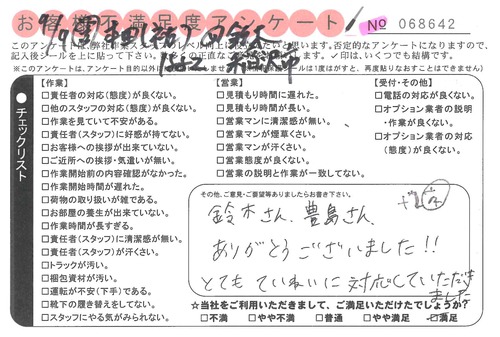 お客様不満足度アンケート
No 068642
このアンケートは、弊社作業スタッフのレベル向上に役立てたいと思います。否定的なアンケートになりますので、
記入後シールを上に貼って下さい。多くの正直なご意見をお待ちしております。✓印は、いくつでも結構です。
チェックリスト
【作業】
□責任者の対応(態度)が良くない。
□他のスタッフの対応(態度)が良くない。
□作業を見ていて不安がある。
□責任者(スタッフ)に好感が持てない。
□お客様への挨拶が出来ていない。
□ご近所への挨拶・気遣いが無い。
□作業開始前の内容確認がなかった。
□作業開始時間が遅れた。
□荷物の取り扱いが雑である。
□お部屋の養生が出来ていない。
□作業時間が長すぎる。
□責任者(スタッフ)に清潔感が無い。
□責任者(スタッフ)が汗くさい。
□トラックが汚い。
□梱包資材が汚い。
□運転が不安(下手)である。
□靴下の履き替えをしてない。
□スタッフにやる気がみられない。
【営業】
□見積もり時間に遅れた。
□見積もり時間が長い。
□営業マンに清潔感が無い。
□営業マンが煙草くさい。
□営業マンが汗くさい。
□営業態度が良くない。
□営業の説明と作業が一致してない。
【受付・その他】
□電話の対応が良くない。
□オプション業者の説明
・作業が良くない。
□オプション業者の対応
(態度)が良くない。
その他、ご意見・ご要望等ありましたらお書き下さい。
鈴木さん、豊島さん、
ありがとうございました!!
とてもていねいに対応していただき
ました
☆当社をご利用いただきまして、ご満足いただけたでしょうか?
□不満 □やや不満 □普通 □やや満足 ☑満足